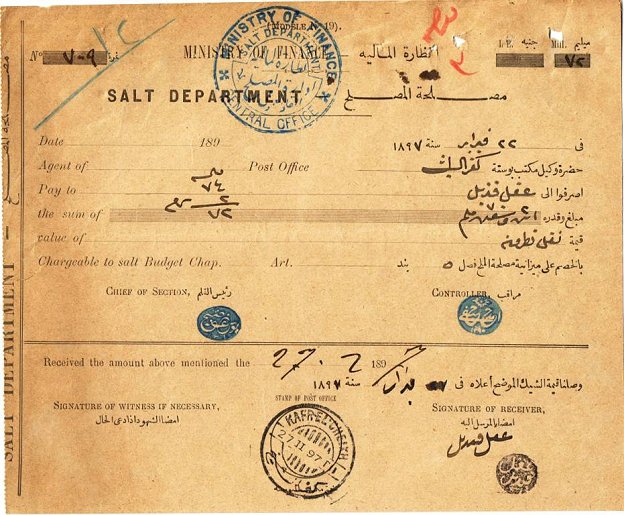 (MODELE No 19).
No ٧٠٩ نمرة
MINISTRY OF FINANCE نظارة المالية
L.E. جنيه Mill. مليم
٧٢
SALT DEPARTMENT مصلحة الملح
MINISTRY OF FINANCE
SALT DEPARTMENT
CENTRAL OFFICE
Date 189 فى ٢٢ فبراير سنة ١٨٩٧
Agent of Post Office حضرة وكيل مكتب بوستة كفر الشيخ
Pay to اصرفوا الى عقل قنديل
٧٤
٢
٧٢
the sum of مبلغ وقدره
value of قيمة نقل
Chargeable to salt Budget Chap. Art. بالخصم على ميزانية مصلحة الملح فصل ٥ بند
CHIEF OF SECTION, رئيس القلم CONTROLLER, مراقب
Received the amount above mentioned the 27. 2 189
وصلنا قيمة الشيك الموضح أعلاه فى سنة ١٨٩٧
SIGNATURE OF WITNESS IF NECESSARY, STAMP OF POST OFFICE SIGNATURE OF RECEIVER,
امضا الشهود اذا دعى الحال امضا المرسل اليه
عقل قنديل
KAFR-EL-CHEIKH
27 II 97
SALT DEPARTMENT — مصلحة الملح